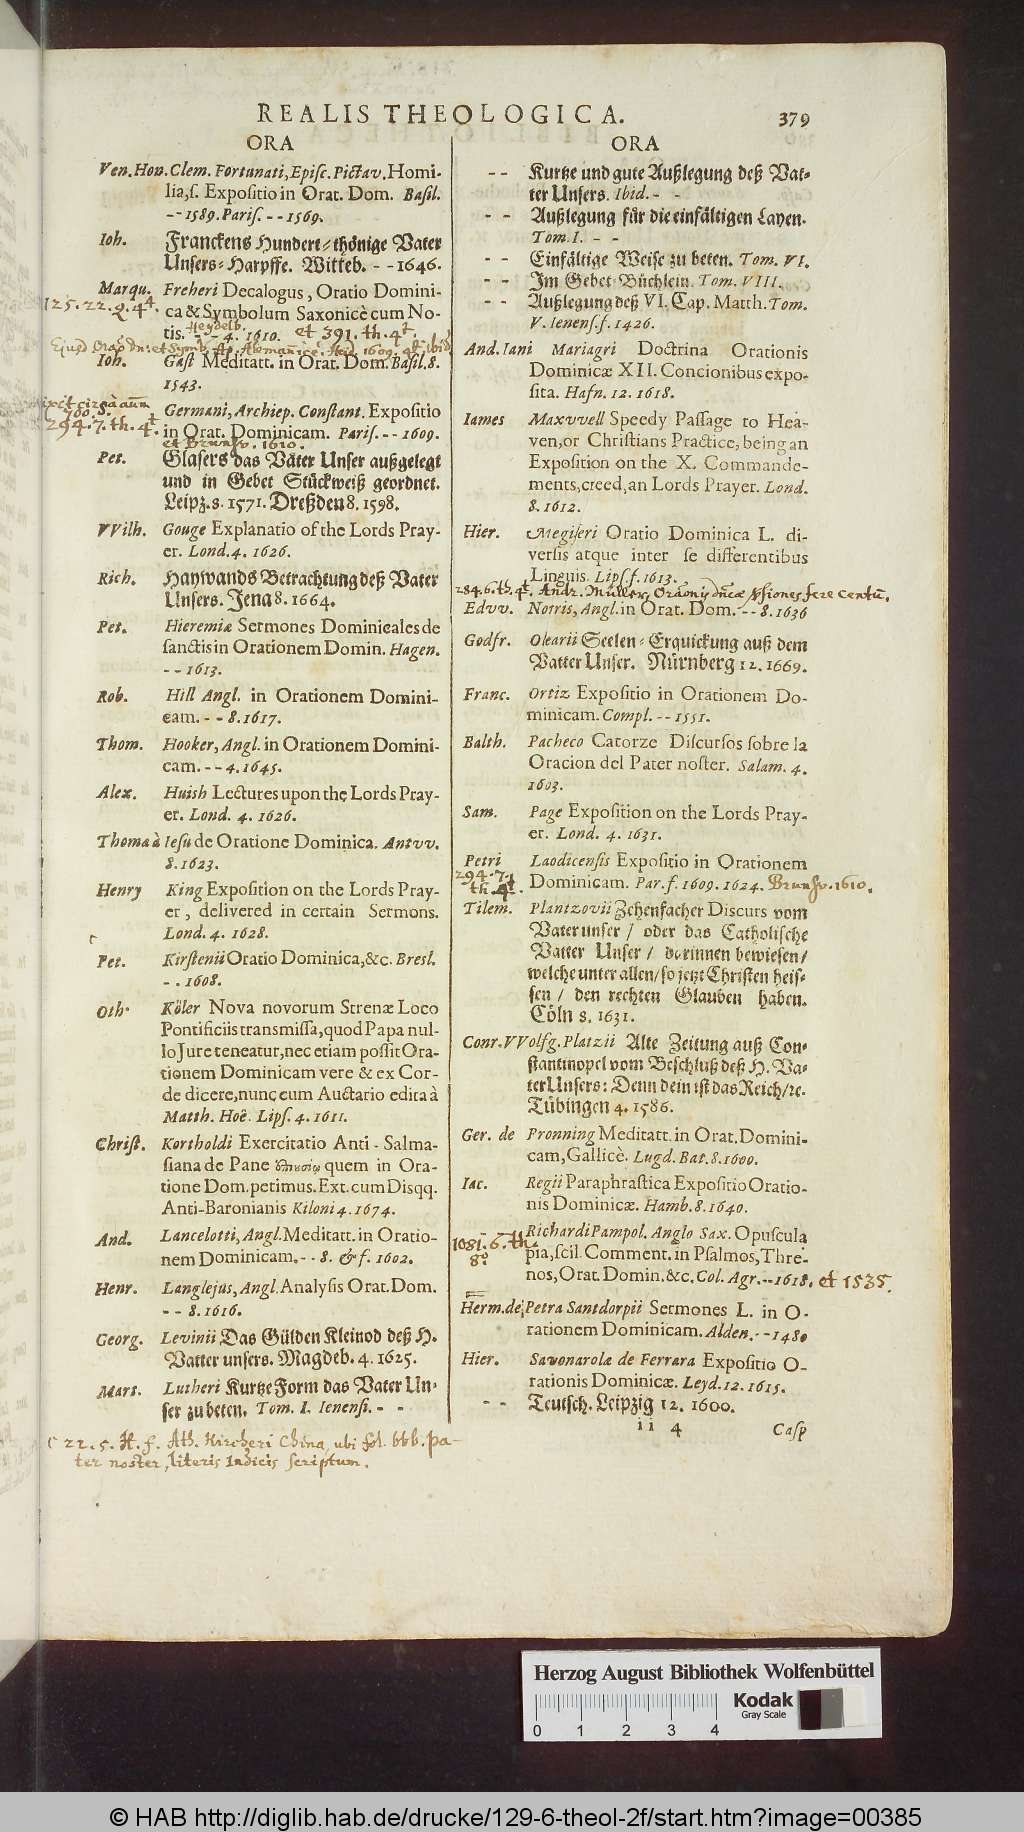 REALIS THEOLOGICA. 379
ORA
Ven. Hon. Clem. Fortunati, Episc. Pictav. Homi-
lia, s. Expositio in Orat. Dom. Basil.
-- 1589. Paris. -- 1569.
Ioh. Franckens Hundert-thönige Vater
Unsers-Harpffe. Witteb. -- 1646.
Marqu. Freheri Decalogus, Oratio Domini-
125. 22. Q. 4t. ca & Symbolum Saxonicè cum No-
tis. Heydelb. -- 4. 1610. et 391. th. 4t.
Ioh. Gast Meditatt. in Orat. Dom. Basil. 8.
1543.
Germani, Archiep. Constant. Expositio
294. 7. th. 4t in Orat. Dominicam. Paris. -- 1609.
et Brunsv. 1610.
Pet. Glasers das Vater Unser außgelegt
und in Gebet Stückweiß geordnet.
Leipz. 8. 1571. Dreßden 8. 1598.
VVilh. Gouge Explanatio of the Lords Pray-
er. Lond. 4. 1626.
Rich. Haywands Betrachtung deß Vater
Unsers. Jena 8. 1664.
Pet. Hieremiæ Sermones Dominicales de
sanctis in Orationem Domin. Hagen.
-- 1613.
Rob. Hill Angl. in Orationem Domini-
cam. -- 8. 1617.
Thom. Hooker, Angl. in Orationem Domini-
cam. -- 4. 1645.
Alex. Huish Lectures upon the Lords Pray-
er. Lond. 4. 1626.
Thoma à Iesu de Oratione Dominica. Antvv.
8. 1623.
Henry King Exposition on the Lords Pray-
er, delivered in certain Sermons.
Lond. 4. 1628.
Pet. Kirstenii Oratio Dominica, &c. Bresl.
-. 1608.
Oth. Köler Nova novorum Strenæ Loco
Pontificiis transmissa, quod Papa nul-
lo Jure teneatur, nec etiam possit Ora-
tionem Dominicam vere & ex Cor-
de dicere, nunc cum Auctario edita à
Matth. Hoë. Lips. 4. 1611.
Christ. Kortholdi Exercitatio Anti-Salma-
siana de Pane quem in Ora-
tione Dom. petimus. Ext. cum Disqq.
Anti-Baronianis Kiloni 4. 1674.
And. Lancelotti, Angl. Meditatt. in Oratio-
nem Dominicam. -- 8. & f. 1602.
Henr. Langlejus, Angl. Analysis Orat. Dom.
-- 8. 1616.
Georg. Levinii Das Gülden Kleinod deß H.
Vatter unsers. Magdeb. 4. 1625.
Mart. Lutheri Kurtze Form das Vater Un-
ser zu beten. Tom. I. Ienensi. --
22. 5. H. f. Ath. Kircheri China, ubi fol. bbb. pa-
ter noster, literis Indicis scriptum.
ORA
-- Kurtze und gute Außlegung deß Vat-
ter Unsers. Ibid. --
-- Außlegung für die einfältigen Layen.
Tom. I. --
-- Einfältige Weise zu beten. Tom. VI.
-- Im Gebet-Büchlein. Tom. VIII.
-- Außlegung deß VI. Cap. Matth. Tom.
V. Ienens. f. 1426.
And. Iani Mariagri Doctrina Orationis
Dominicæ XII. Concionibus expo-
sita. Hafn. 12. 1618.
Iames Maxvvell Speedy Passage to Hea-
ven, or Christians Practice, being an
Exposition on the X. Commande-
ments, creed, an Lords Prayer. Lond.
8. 1612.
Hier. Megiseri Oratio Dominica L. di-
versis atque inter se differentibus
Linguis. Lips. f. 1613.
284. 6. th. 4t. Andr. Müller fere centu.
Edvv. Norris, Angl. in Orat. Dom. -- 8. 1636
Godfr. Olearii Seelen-Erquickung auß dem
Vatter Unser. Nürnberg 12. 1669.
Franc. Ortiz Expositio in Orationem Do-
minicam. Compl. -- 1551.
Balth. Pacheco Catorze Discursos sobre la
Oracion del Pater noster. Salam. 4.
1603.
Sam. Page Exposition on the Lords Pray-
er. Lond. 4. 1631.
Petri Laodicensis Expositio in Orationem
294. 7. th. 4t. Dominicam. Par. f. 1609. 1624. Brunsv. 1610.
Tilem. Plantzovii Zehenfacher Discurs vom
Vater unser / oder das Catholische
Vatter Unser / darinnen bewiesen /
welche unter allen / so jetzt Christen heis-
sen / den rechten Glauben haben.
Cöln 8. 1631.
Conr. VVolfg. Platzii Alte Zeitung auß Con-
stantinopel vom Beschluß deß H. Va-
ter Unsers: Denn dein ist das Reich / ꝛc.
Tübingen 4. 1586.
Ger. de Pronning Meditatt. in Orat. Domini-
cam, Gallicè. Lugd. Bat. 8. 1600.
Iac. Regii Paraphrastica Expositio Oratio-
nis Dominicæ. Hamb. 8. 1640.
Richardi Pampol. Anglo Sax. Opuscula
1081. 6. th. 8º pia, scil. Comment. in Psalmos, Thre-
nos, Orat. Domin. &c. Col. Agr. -- 1618. et 1535.
Herm. de Petra Santdorpii Sermones L. in O-
rationem Dominicam. Alden. -- 1480
Hier. Savonarola de Ferrara Expositio O-
rationis Dominicæ. Leyd. 12. 1615.
-- Teutsch. Leipzig 12. 1600.
ii 4 Casp
Herzog August Bibliothek Wolfenbüttel
0 1 2 3 4
Kodak
Gray Scale
© HAB http://diglib.hab.de/drucke/129-6-theol-2f/start.htm?image=00385